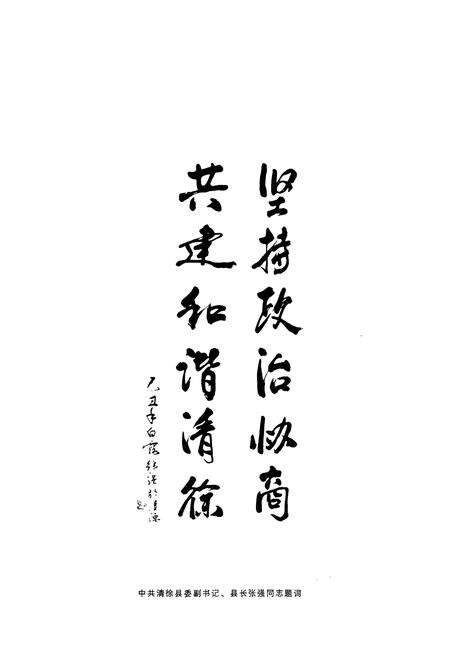 坚持政治协商
共建和谐清徐
己丑年白露张强于清源
中共清徐县委副书记、县长张强同志题词